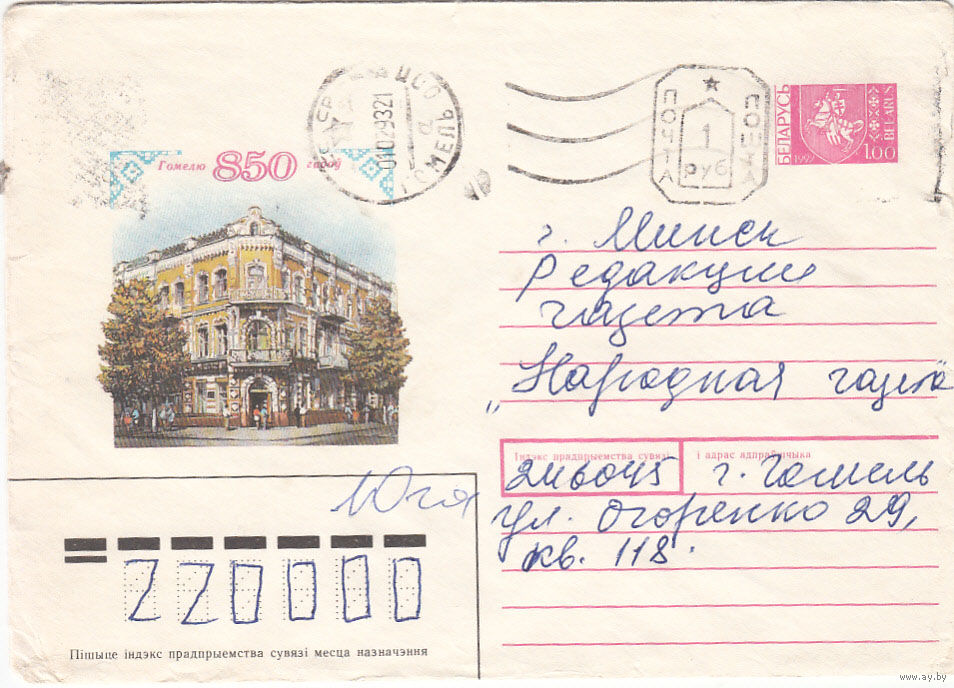 Гомелю 850 гадоў
01029321
ГОМЕЛЬ
ПОЧТА
1
руб
ПОШТА
БЕЛАРУСЬ
1992
BELARUS
1.00
г. Минск
Редакции
газета
"Народная газета"
Індэкс прадпрыемства сувязі і адрас адпраўшчыка
246045 г. Гомель
ул. Огоренко 29,
кв. 118.
220000
Пішыце індэкс прадпрыемства сувязі месца назначэння
www.ay.by